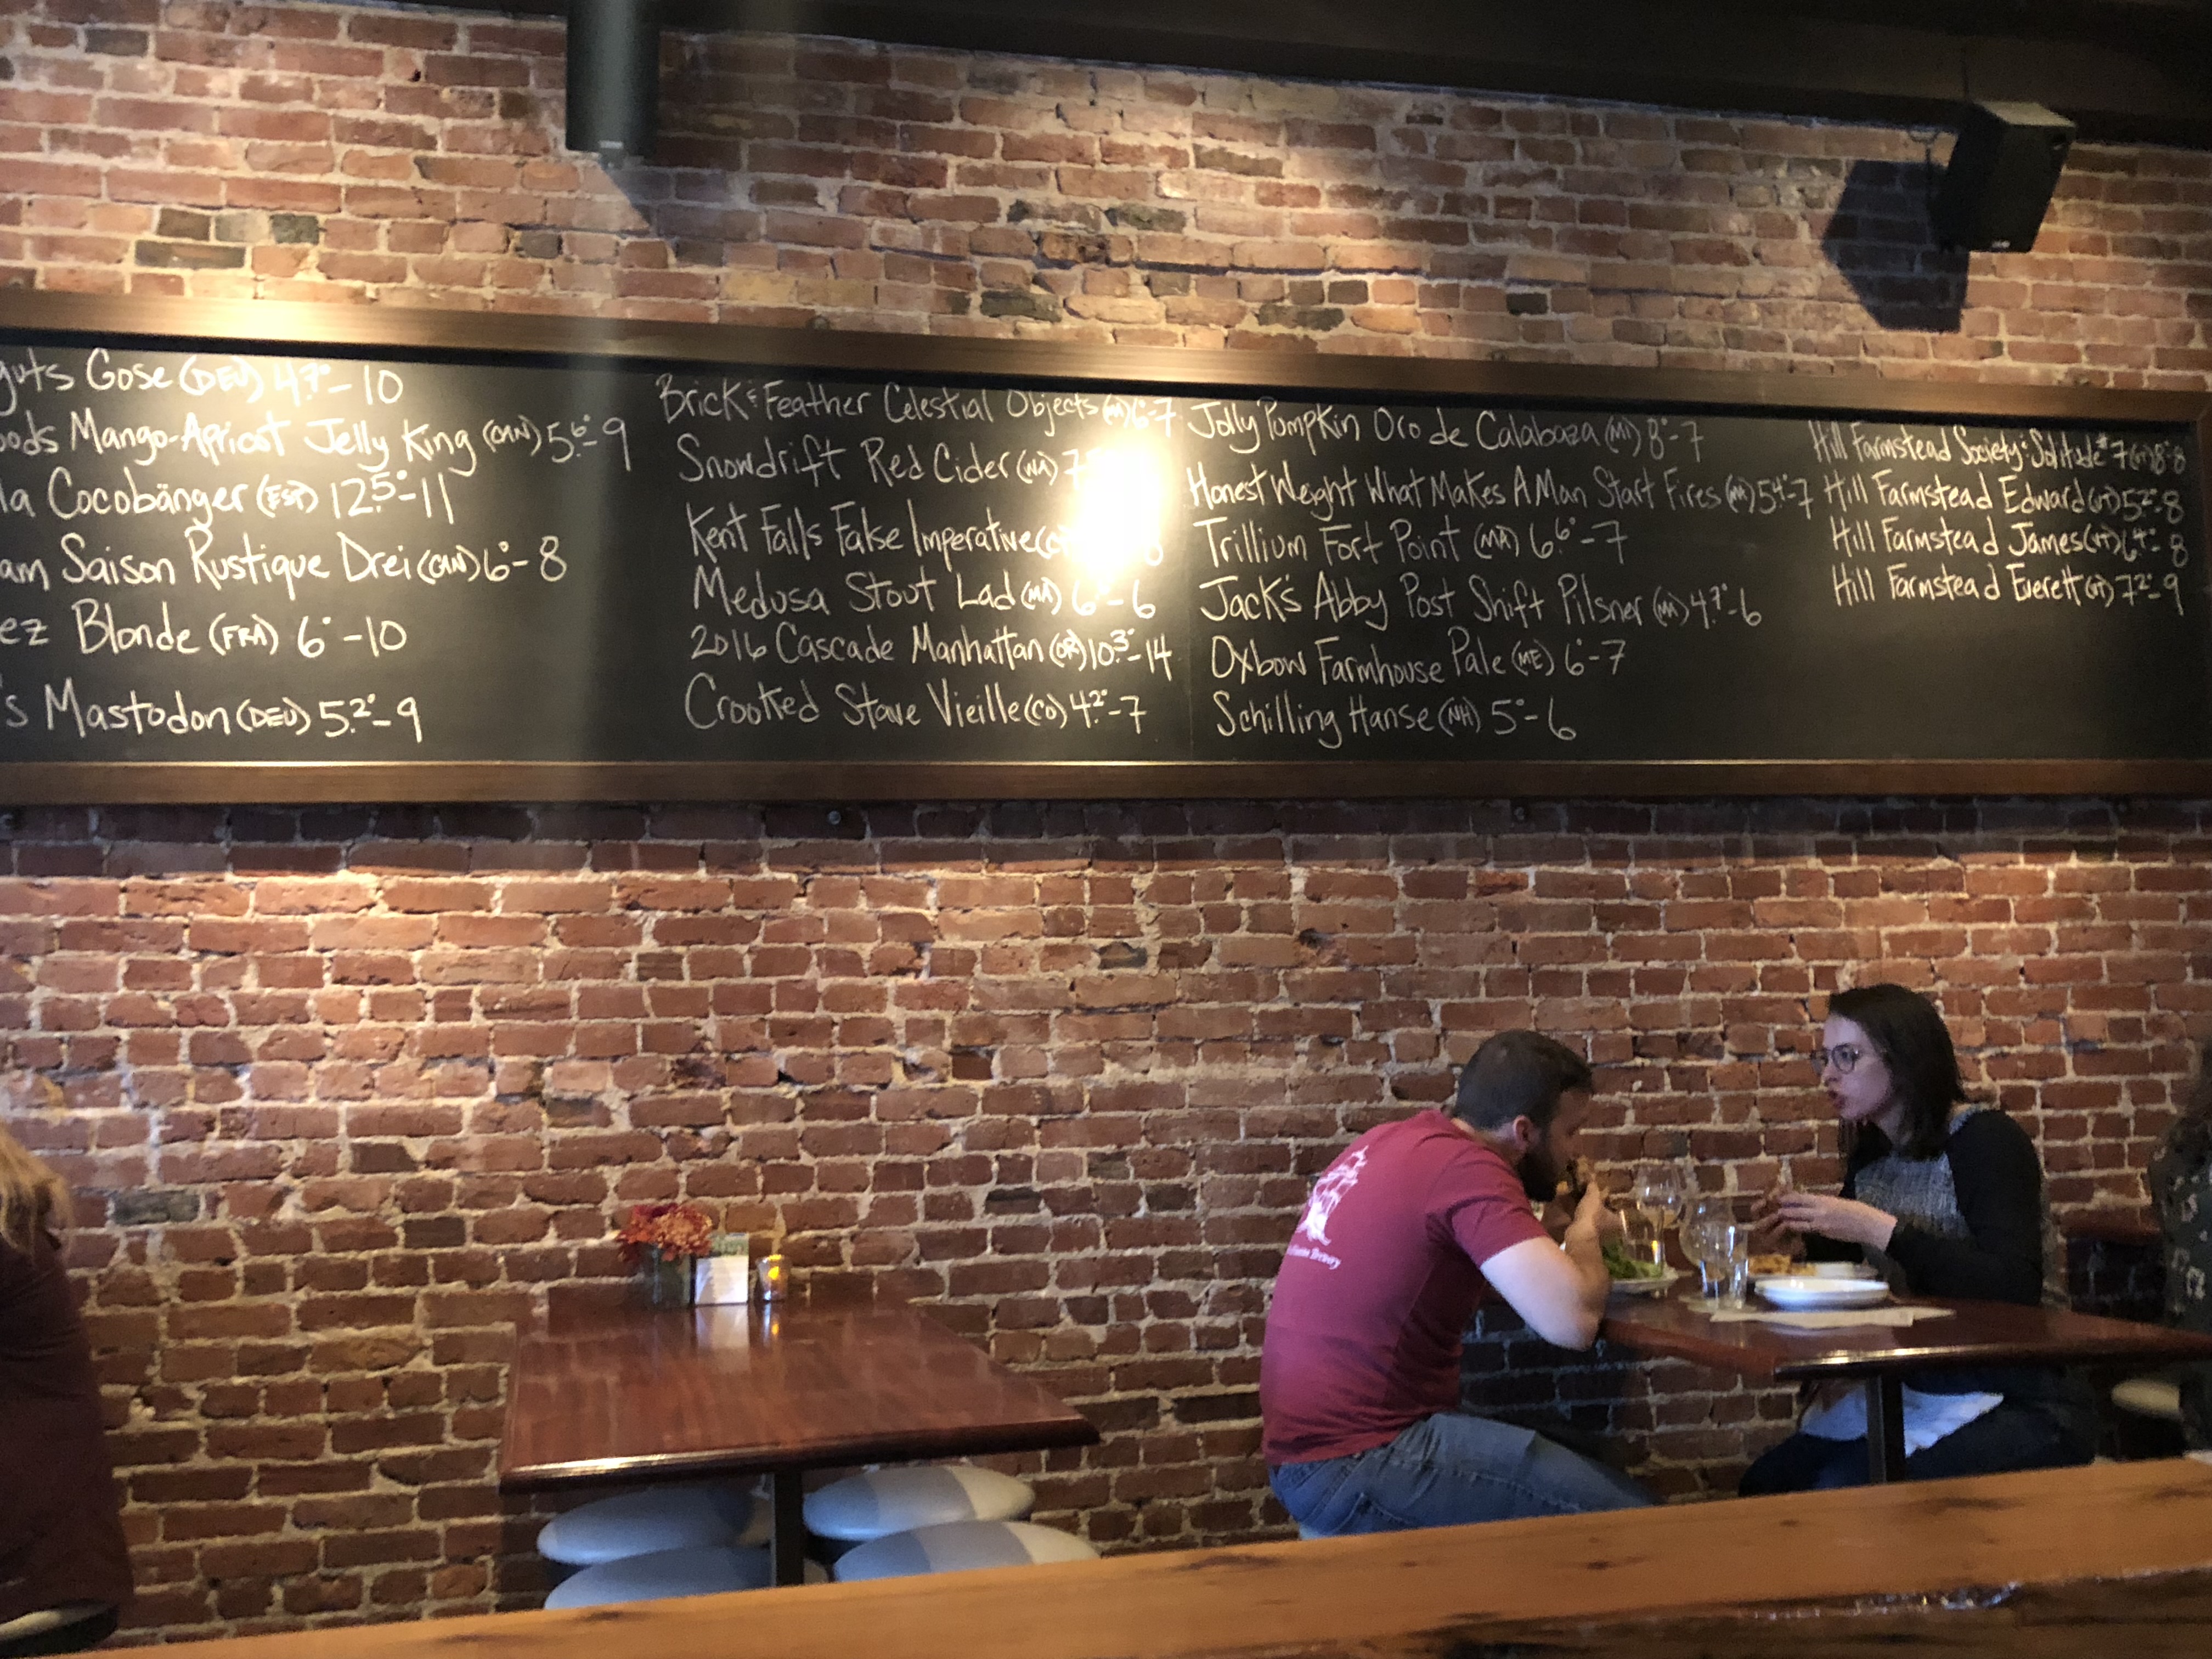 Gose (DEU) 4.7° - 10
Mango-Apricot Jelly King (CAN) 5.6° - 9
Cocobänger (EST) 12.5° - 11
Saison Rustique Drei (CAN) 6° - 8
Blonde (FRA) 6° - 10
's Mastodon (DEU) 5.2° - 9
Brick & Feather Celestial Objects (MA) 6° - 7
Snowdrift Red Cider (WA) 7
Kent Falls False Imperative
Medusa Stout Lad (MA) 6° - 6
2016 Cascade Manhattan (OR) 10.3° - 14
Crooked Stave Vieille (CO) 4.2° - 7
Jolly Pumpkin Oro de Calabaza (MI) 8° - 7
Honest Weight What Makes A Man Start Fires (MA) 5.4° - 7
Trillium Fort Point (MA) 6.6° - 7
Jack's Abby Post Shift Pilsner (MA) 4.7° - 6
Oxbow Farmhouse Pale (ME) 6° - 7
Schilling Hanse (NH) 5° - 6
Hill Farmstead Society & Solitude #7 (VT) 8° - 8
Hill Farmstead Edward (VT) 5.2° - 8
Hill Farmstead James (VT) 6.4° - 8
Hill Farmstead Everett (VT) 7.2° - 9
Brewery